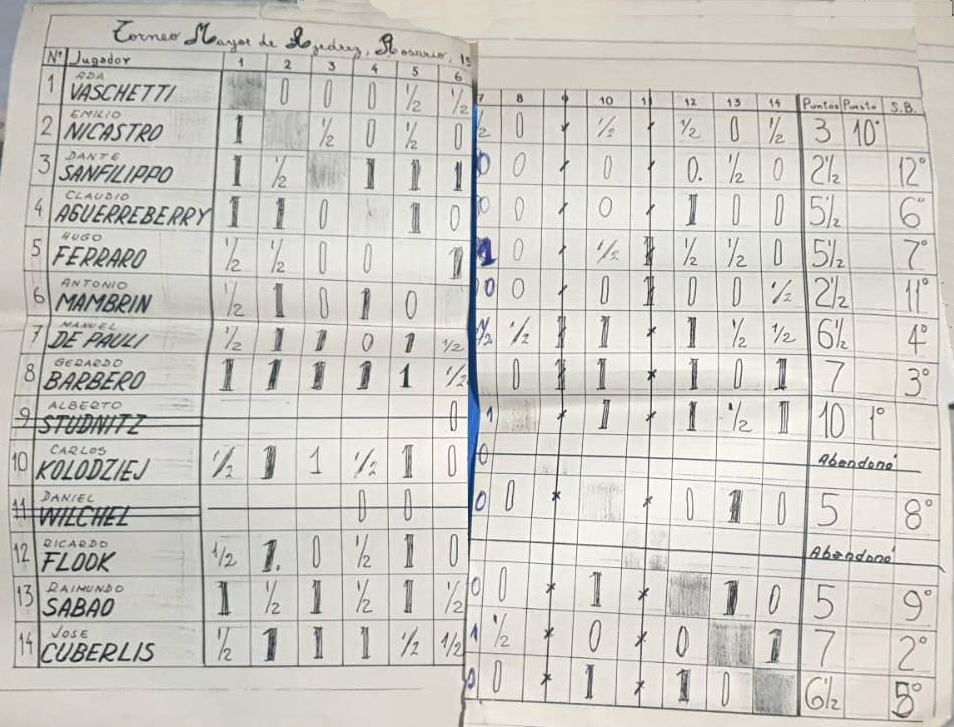 Torneo Mayor de Ajedrez, Rosario, 19
Nº Jugador 1 2 3 4 5 6 7 8 9 10 11 12 13 14 Puntos Puesto S.B.
1 ADA VASCHETTI 0 0 0 ½ ½ ½ 0 × ½ × ½ 0 ½ 3 10°
2 EMILIO NICASTRO 1 ½ 0 ½ 0 0 0 × 0 × 0. ½ 0 2½ 12°
3 DANTE SANFILIPPO 1 ½ 1 1 1 0 0 × 0 × 1 0 0 5½ 6°
4 CLAUDIO AGUERREBERRY 1 1 0 1 0 1 0 × ½ 1 ½ ½ 0 5½ 7°
5 HUGO FERRARO ½ ½ 0 0 1 0 0 × 0 1 0 0 ½ 2½ 11°
6 ANTONIO MAMBRIN ½ 1 0 1 0 ½ ½ 1 1 × 1 ½ ½ 6½ 4°
7 MANUEL DE PAULI ½ 1 1 0 1 ½ 0 1 1 × 1 0 1 7 3°
8 GERARDO BARBERO 1 1 1 1 1 ½ 1 × 1 × 1 ½ 1 10 1°
9 ALBERTO STUDNITZ 0 0 Abandonó
10 CARLOS KOLODZIEJ ½ 1 1 ½ 1 0 0 0 × × 0 1 0 5 8°
11 DANIEL WILCHEL 0 0 Abandonó
12 RICARDO FLOOK ½ 1. 0 ½ 1 0 0 0 × 1 × 1 0 5 9°
13 RAIMUNDO SABAO 1 ½ 1 ½ 1 ½ 1 ½ × 0 × 0 1 7 2°
14 JOSE CUBERLIS ½ 1 1 1 ½ ½ 0 0 × 1 × 1 0 6½ 5°